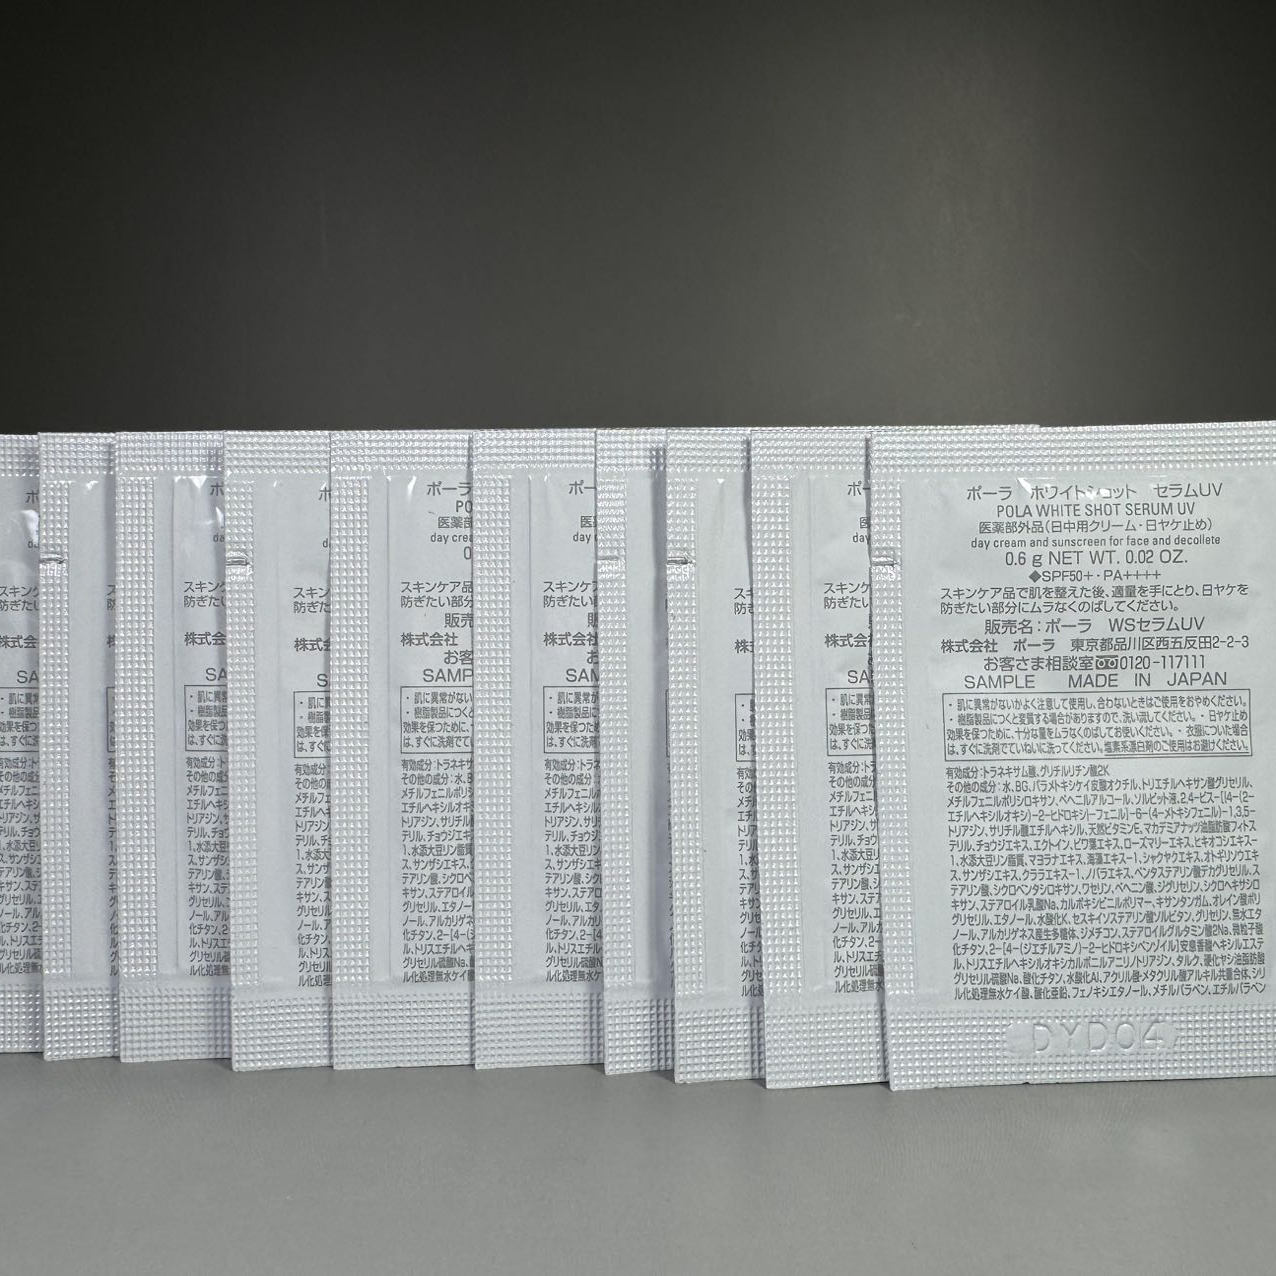 ポーラ ホワイトショット セラムUV
POLA WHITE SHOT SERUM UV
医薬部外品(日中用クリーム・日ヤケ止め)
day cream and sunscreen for face and decollete
0.6 g NET WT. 0.02 OZ.
◆SPF50+・PA++++
スキンケア品で肌を整えた後、適量を手にとり、日ヤケを
防ぎたい部分にムラなくのばしてください。
販売名:ポーラ WSセラムUV
株式会社 ポーラ 東京都品川区西五反田2-2-3
お客さま相談室 0120-117111
SAMPLE MADE IN JAPAN
・肌に異常がないかよく注意して使用し、合わないときはご使用をおやめください。
・樹脂製品につくと変質する場合がありますので、洗い流してください。・日ヤケ止め
効果を保つために、十分な量をムラなくのばしてお使いください。・衣服についた場合
は、すぐに洗剤でていねいに洗ってください。塩素系漂白剤のご使用はお避けください。
有効成分:トラネキサム酸、グリチルリチン酸2K
その他の成分:水、BG、パラメトキシケイ皮酸オクチル、トリエチルヘキサン酸グリセリル、
メチルフェニルポリシロキサン、ベヘニルアルコール、ソルビット液、2,4-ビス-[{4-(2-
エチルヘキシルオキシ)-2-ヒドロキシ}-フェニル]-6-(4-メトキシフェニル)-1,3,5-
トリアジン、サリチル酸エチルヘキシル、天然ビタミンE、マカデミアナッツ油脂肪酸フィトス
テリル、チョウジエキス、エクトイン、ビワ葉エキス、ローズマリーエキス、ヒキオコシエキス-
1、水添大豆リン脂質、マヨラナエキス、海藻エキス-1、シャクヤクエキス、オトギリソウエキ
ス、サンザシエキス、クララエキス-1、ノバラエキス、ペンタステアリン酸デカグリセリル、ス
テアリン酸、シクロペンタシロキサン、ワセリン、ベヘニン酸、ジグリセリン、シクロヘキサシロ
キサン、ステアロイル乳酸Na、カルボキシビニルポリマー、キサンタンガム、オレイン酸ポリ
グリセリル、エタノール、水酸化K、セスキイソステアリン酸ソルビタン、グリセリン、無水エタ
ノール、アルカリゲネス産生多糖体、ジメチコン、ステアロイルグルタミン酸2Na、微粒子酸
化チタン、2-[4-(ジエチルアミノ)-2-ヒドロキシベンゾイル]安息香酸ヘキシルエステ
ル、トリスエチルヘキシルオキシカルボニルアニリノトリアジン、タルク、硬化ヤシ油脂肪酸
グリセリル硫酸Na、酸化チタン、水酸化Al、アクリル酸・メタクリル酸アルキル共重合体、シリ
ル化処理無水ケイ酸、酸化亜鉛、フェノキシエタノール、メチルパラベン、エチルパラベン
DYD04